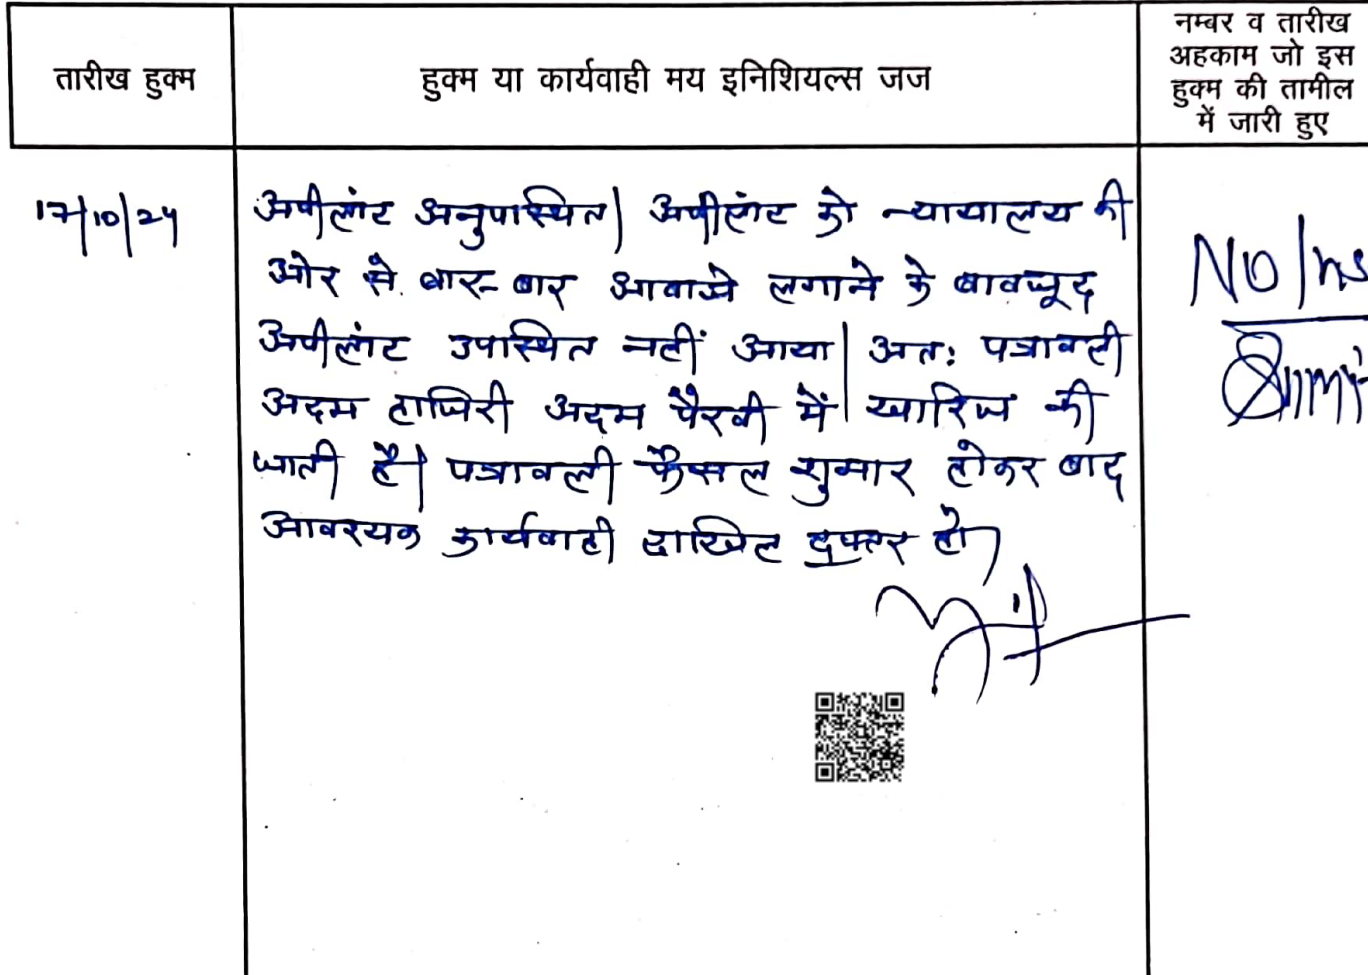 तारीख हुक्म
हुक्म या कार्यवाही मय इनिशियल्स जज
नम्बर व तारीख
अहकाम जो इस
हुक्म की तामील
में जारी हुए
17/10/24
अपीलांट अनुपस्थित। अपीलांट को न्यायालय की
ओर से बार-बार आवाजे लगाने के बावजूद
अपीलांट उपस्थित नहीं आया। अतः पत्रावली
अदम हाजिरी अदम पैरवी में खारिज की
जाती है। पत्रावली फैसल शुमार होकर बाद
आवश्यक कार्यवाही दाखिल दफ्तर हो